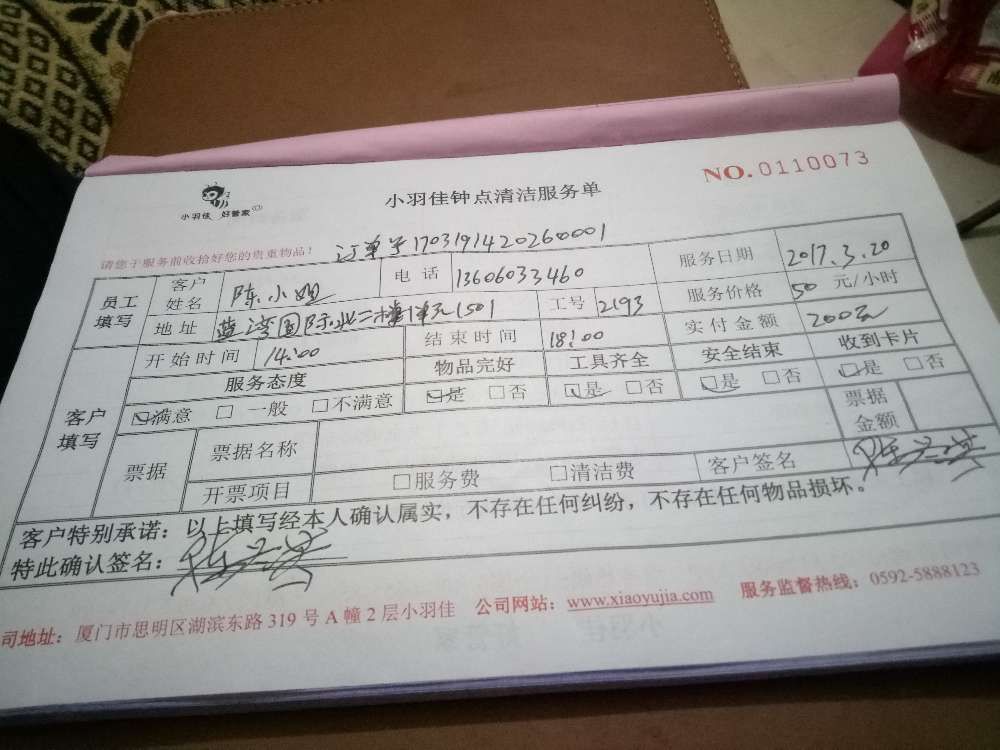 小羽佳 好管家
小羽佳钟点清洁服务单
NO.0110073
请您于服务前收拾好您的贵重物品！
订单号1703191420260001
员工填写 客户姓名 陈小姐 电话 13606033460 服务日期 2017.3.20
地址 蓝湾国际业二楼1单元1501 工号 2193 服务价格 50 元/小时
客户填写 开始时间 14:00 结束时间 18:00 实付金额 200元
服务态度 物品完好 工具齐全 安全结束 收到卡片
☑满意 □一般 □不满意 ☑是 □否 ☑是 □否 ☑是 □否 ☑是 □否
票据 票据名称 票据金额
开票项目 □服务费 □清洁费 客户签名
客户特别承诺：以上填写经本人确认属实，不存在任何纠纷，不存在任何物品损坏。
特此确认签名：
司地址：厦门市思明区湖滨东路 319 号 A 幢 2 层小羽佳 公司网站：www.xiaoyujia.com 服务监督热线：0592-5888123